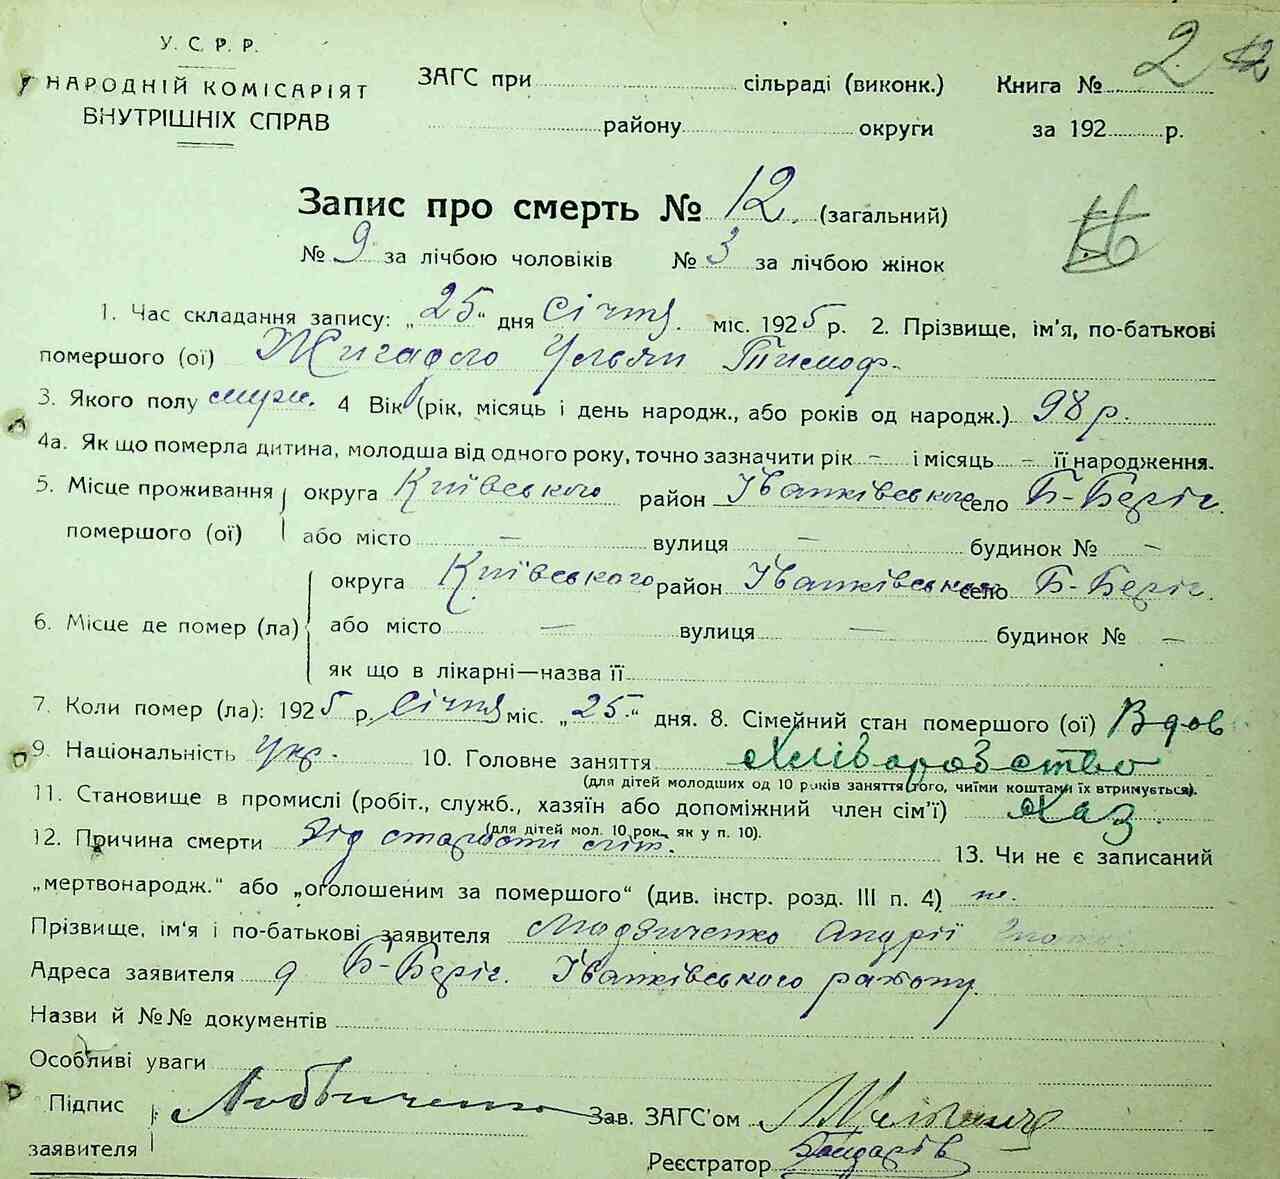 У. С. Р. Р.
НАРОДНІЙ КОМІСАРІЯТ
ВНУТРІШНІХ СПРАВ
ЗАГС при сільраді (виконк.) Книга № 2
району округи за 192 р.
Запис про смерть № 12 (загальний)
№ 9 за лічбою чоловіків № 3 за лічбою жінок
1. Час складання запису: „25“ дня Січня міс. 1925 р. 2. Прізвище, ім'я, по-батькові
помершого (ої) Ульян Тимоф.
3. Якого полу муж. 4 Вік (рік, місяць і день народж., або років од народж.) 98 р.
4а. Як що померла дитина, молодша від одного року, точно зазначити рік – і місяць – її народження.
5. Місце проживання округа Київського район Іванківського село Б-Беріг.
помершого (ої) або місто — вулиця — будинок № —
округа Київського район Іванківського село Б-Беріг.
6. Місце де помер (ла) або місто — вулиця — будинок № —
як що в лікарні—назва її
7. Коли помер (ла): 1925 р. Січня міс. „25“ дня. 8. Сімейний стан помершого (ої) Вдов
9. Національність Укр. 10. Головне заняття Хліборобство
(для дітей молодших од 10 років заняття того, чиїми коштами їх втримується).
11. Становище в промислі (робіт., служб., хазяїн або допоміжний член сім'ї) Хаз.
(для дітей мол. 10 рок. як у п. 10).
12. Причина смерти Від старости літ. 13. Чи не є записаний
„мертвонародж.“ або „оголошеним за помершого“ (див. інстр. розд. III п. 4) ні.
Прізвище, ім'я і по-батькові заявителя Андрій
Адреса заявителя Б-Беріг. Іванківського району.
Назви й №№ документів
Особливі уваги
Підпис
заявителя
Зав. ЗАГС'ом
Реєстратор